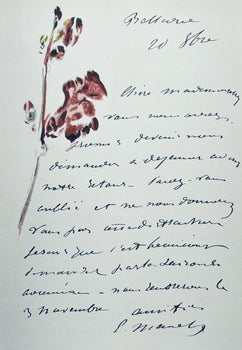 Bellevue
20 8bre
Chère mademoiselle
vous nous aviez
promis de venir nous
demander à déjeuner avant
notre retour. l'avez-vous
oublié et ne nous donnerez
vous pas cette distraction
que c'est beaucoup
demander par le
nous rentrerons le
3 novembre amitiés
E. Manet